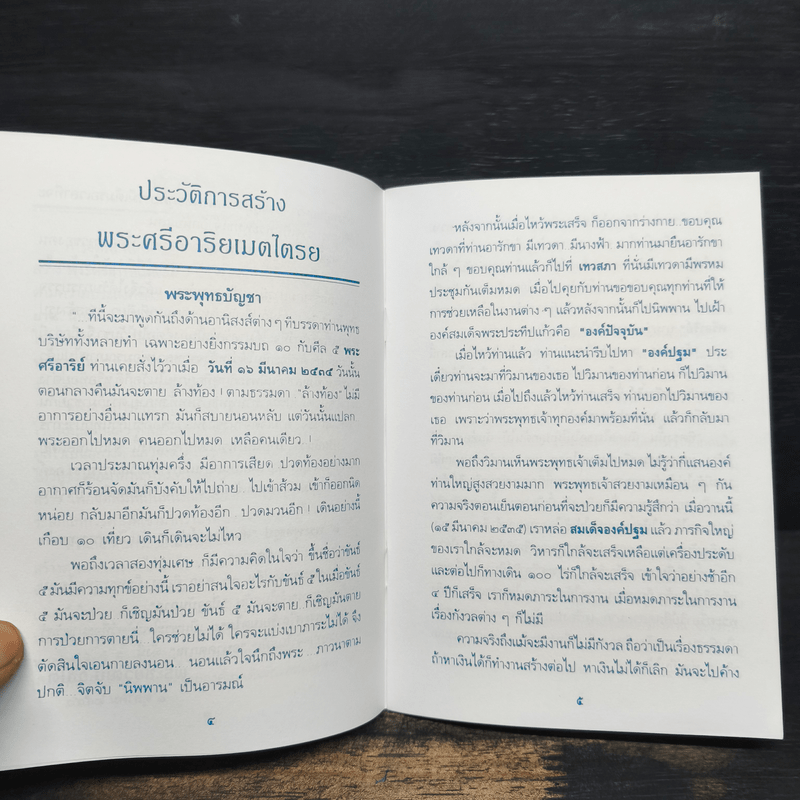 ประวัติการสร้าง
พระศรีอาริยเมตไตรย
พระพุทธบัญชา
"...ทีนี้จะมาพูดกันถึงด้านอานิสงส์ต่าง ๆ ที่บรรดาท่านพุทธ
บริษัททั้งหลายทำ เฉพาะอย่างยิ่งกรรมบถ ๑๐ กับศีล ๕ พระ
ศรีอาริย์ ท่านเคยสั่งไว้ว่าเมื่อ วันที่ ๑๖ มีนาคม ๒๕๓๔ วันนั้น
ตอนกลางคืนมันจะตาย ล้างท้อง ! ตามธรรมดา "ล้างท้อง" ไม่มี
อาการอย่างอื่นมาแทรก มันก็สบายนอนหลับ แต่วันนั้นแปลก
พระออกไปหมด คนออกไปหมด เหลือคนเดียว..!
เวลาประมาณทุ่มครึ่ง มีอาการเสียด ปวดท้องอย่างมาก
อากาศก็ร้อนจัดมันก็บังคับให้ไปถ่าย...ไปเข้าส้วม เข้าก็ออกนิด
หน่อย กลับมาอีกมันก็ปวดท้องอีก...ปวดมวนอีก ! เดินอย่างนี้
เกือบ ๑๐ เที่ยว เดินก็เดินจะไม่ไหว
พอถึงเวลาสองทุ่มเศษ ก็มีความคิดในใจว่า ขึ้นชื่อว่าขันธ์
๕ มันมีความทุกข์อย่างนี้ เราอย่าสนใจอะไรกับขันธ์ ๕ ในเมื่อขันธ์
๕ มันจะป่วย ก็เชิญมันป่วย ขันธ์ ๕ มันจะตาย ก็เชิญมันตาย
การป่วยการตายนี่...ใครช่วยไม่ได้ ใครจะแบ่งเบาภาระไม่ได้ จึง
ตัดสินใจเอนกายลงนอน...นอนแล้วใจนึกถึงพระ...ภาวนาตาม
ปกติ...จิตจับ "นิพพาน" เป็นอารมณ์
๔
หลังจากนั้นเมื่อไหว้พระเสร็จ ก็ออกจากร่างกาย..ขอบคุณ
เทวดาที่ท่านอารักขา มีเทวดา มีนางฟ้า มากท่านมายืนอารักขา
ใกล้ ๆ ขอบคุณท่านแล้วก็ไปที่ เทวสภา ที่นั่นมีเทวดามีพรหม
ประชุมกันเต็มหมด เมื่อไปคุยกับท่านขอขอบคุณทุกท่านที่ให้
การช่วยเหลือในงานต่าง ๆ แล้วหลังจากนั้นก็ไปนิพพาน ไปเฝ้า
องค์สมเด็จพระประทีปแก้วคือ "องค์ปัจจุบัน"
เมื่อไหว้ท่านแล้ว ท่านแนะนำรีบไปหา "องค์ปฐม" ประ
เดี๋ยวท่านจะมาที่วิมานของเธอ ไปวิมานของท่านก่อน ก็ไปวิมาน
ของท่านก่อน เมื่อไปถึงแล้วไหว้ท่านเสร็จ ท่านบอกไปวิมานของ
เธอ เพราะว่าพระพุทธเจ้าทุกองค์มาพร้อมที่นั่น แล้วก็กลับมา
ที่วิมาน
พอถึงวิมานเห็นพระพุทธเจ้าเต็มไปหมด ไม่รู้ว่ากี่แสนองค์
ท่านใหญ่สูงสวยงามมาก พระพุทธเจ้าสวยงามเหมือน ๆ กัน
ความจริงตอนเย็นตอนก่อนที่จะป่วยก็มีความรู้สึกว่า เมื่อวานนี้
(๑๕ มีนาคม ๒๕๓๕) เราหล่อ สมเด็จองค์ปฐม แล้ว ภารกิจใหญ่
ของเราใกล้จะหมด วิหารก็ใกล้จะเสร็จเหลือแต่เครื่องประดับ
และต่อไปก็ทางเดิน ๑๐๐ ไร่ก็ใกล้จะเสร็จ เข้าใจว่าอย่างช้าอีก
๔ ปีก็เสร็จ เราก็หมดภาระในการงาน เมื่อหมดภาระในการงาน
เรื่องกังวลต่าง ๆ ก็ไม่มี
ความจริงถึงแม้จะมีงานก็ไม่มีกังวล ถือว่าเป็นเรื่องธรรมดา
ถ้าหาเงินได้ก็ทำงานสร้างต่อไป หาเงินไม่ได้ก็เลิก มันจะไปค้าง
๕